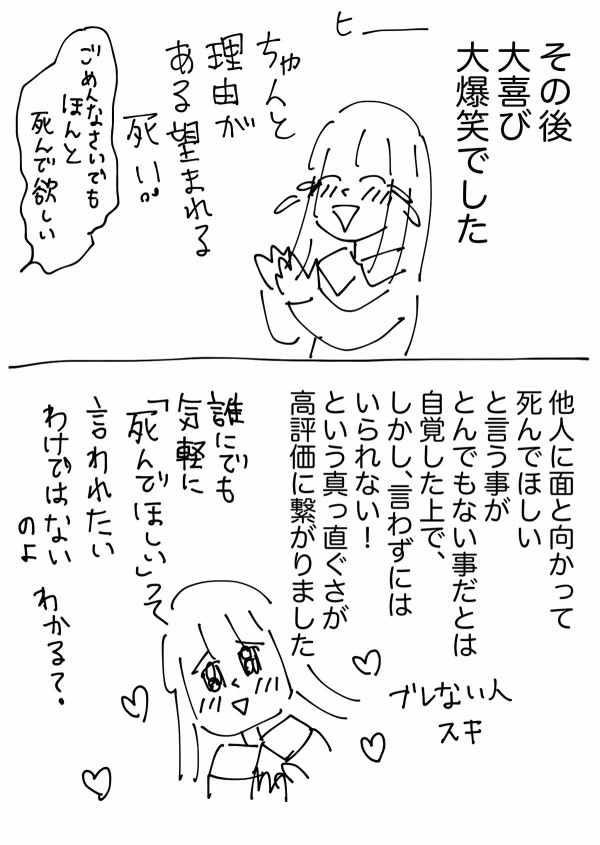 その後
大喜び
大爆笑でした
ヒ――
ちゃんと
理由が
ある望まれる
死い。
ごめんなさいでも
ほんと
死んで欲しい
他人に面と向かって
死んでほしい
と言う事が
とんでもない事だとは
自覚した上で、
しかし、言わずには
いられない！
という真っ直ぐさが
高評価に繋がりました
誰にでも
気軽に
「死んでほしい」って
言われたい
わけではない
のよ
わかる?.
ブレない人
スキ